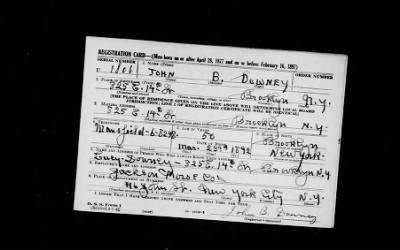 REGISTRATION CARD—(Men born on or after April 28, 1877 and on or before February 16, 1897)
SERIAL NUMBER 1. NAME (Print) ORDER NUMBER
U 1106 JOHN B. DOWNEY
2. PLACE OF RESIDENCE (Print)
325 E. 14th St Brooklyn N.Y.
[THE PLACE OF RESIDENCE GIVEN ON THE LINE ABOVE WILL DETERMINE LOCAL BOARD
JURISDICTION; LINE 2 OF REGISTRATION CERTIFICATE WILL BE IDENTICAL]
3. MAILING ADDRESS
325 E. 14th St Brooklyn N.Y.
4. TELEPHONE 5. AGE IN YEARS 6. PLACE OF BIRTH
50 Brooklyn
Mansfield-6-3292 Mar. 25th 1892 New York
7. NAME AND ADDRESS OF PERSON WHO WILL ALWAYS KNOW YOUR ADDRESS
Downey - 325 E. 14th St Brooklyn N.Y.
8. EMPLOYER'S NAME AND ADDRESS
Jackson Co.
9. PLACE OF EMPLOYMENT OR BUSINESS
116 John St. New York City N.Y.
I AFFIRM THAT I HAVE VERIFIED ABOVE ANSWERS AND THAT THEY ARE TRUE.
D. S. S. Form 1
John B. Downey